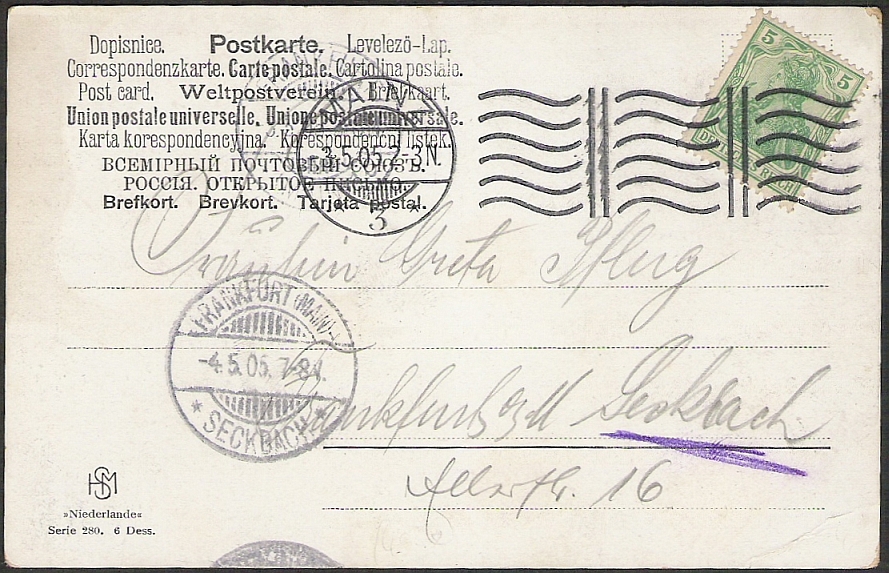 Dopisnice. Postkarte. Levelezö-Lap.
Correspondenzkarte. Carte postale. Cartolina postale.
Post card. Weltpostverein. Briefkaart.
Union postale universelle. Unione postale universale.
Karta korespondencyjna. Korespondenčni listek.
ВСЕМІРНЫЙ ПОЧТОВЫЙ СОЮЗЪ.
РОССІЯ. ОТКРЫТОЕ ПИСЬМО.
Brefkort. Brevkort. Tarjeta postal.
MAIN
3.5.05.2-3N.
* 3 *
5 5
REICH
Fräulein Greta Pflug
FRANKFURT (MAIN)-
-4.5.05.7-8V.
* SECKBACH *
Frankfurt a/M Seckbach
16
HSM
»Niederlande«
Serie 280. 6 Dess.